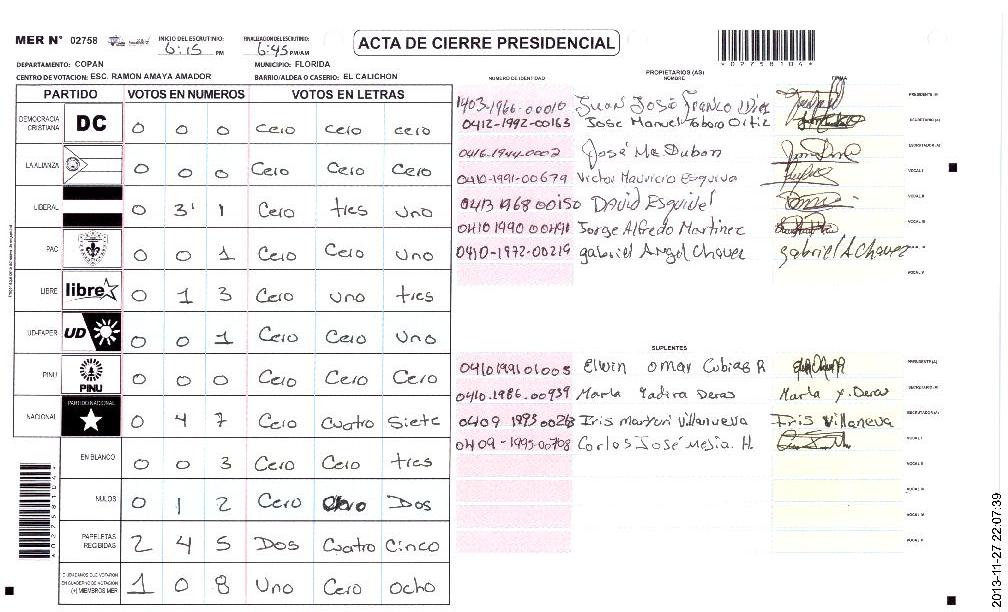 MER N° 02758
INICIO DEL ESCRUTINIO: 6:15 PM
FINALIZACION DEL ESCRUTINIO: 6:45 PM/AM
ACTA DE CIERRE PRESIDENCIAL
*02758104*
DEPARTAMENTO: COPAN
MUNICIPIO: FLORIDA
CENTRO DE VOTACION: ESC. RAMON AMAYA AMADOR
BARRIO/ALDEA O CASERIO: EL CALICHON
PARTIDO VOTOS EN NUMEROS VOTOS EN LETRAS
DEMOCRACIA CRISTIANA DC 0 0 0 Cero Cero cero
LA ALIANZA 0 0 0 Cero Cero Cero
LIBERAL 0 3 1 Cero tres uno
PAC 0 0 1 Cero Cero Uno
LIBRE libre 0 1 3 Cero uno tres
UD-FAPER UD 0 0 1 Cero Cero Uno
PINU PINU 0 0 0 Cero Cero Cero
NACIONAL PARTIDO NACIONAL 0 4 7 Cero Cuatro Siete
EN BLANCO 0 0 3 Cero Cero tres
NULOS 0 1 2 Cero Dos
PAPELETAS RECIBIDAS 2 4 5 Dos Cuatro Cinco
CIUDADANOS QUE VOTARON EN CUADERNO DE VOTACION (+) MIEMBROS MER 1 0 8 Uno Cero ocho
NUMERO DE IDENTIDAD PROPIETARIOS (AS) NOMBRE FIRMA
1403-1966-00010 Juan José Franco PRESIDENTE (A)
0412-1992-00163 Jose Manuel Toboro Ortiz SECRETARIO (A)
0416-1944-0002 José Ma Dubon ESCRUTADOR (A)
0410-1991-00679 Victor Mauricio Esquiva VOCAL I
0413 1968 00150 David Esquivel VOCAL II
0410 1990 00491 Jorge Alfredo Martinez VOCAL III
0410-1972-00219 gabriel Angel Chavez gabriel A Chavez VOCAL IV
VOCAL V
SUPLENTES
0410199101005 Elwin omar Cubias R PRESIDENTE (A)
0410.1986.00939 Marla Yadira Deras Marla Y. Deras SECRETARIO (A)
0409 1993 00263 Iris marlori Villanueva Iris Villaneva ESCRUTADOR (A)
0409-1995-00708 Carlos José Mejia. H. VOCAL I
VOCAL II
VOCAL III
VOCAL IV
VOCAL V
*02758104*
2013-11-27 22:07:39